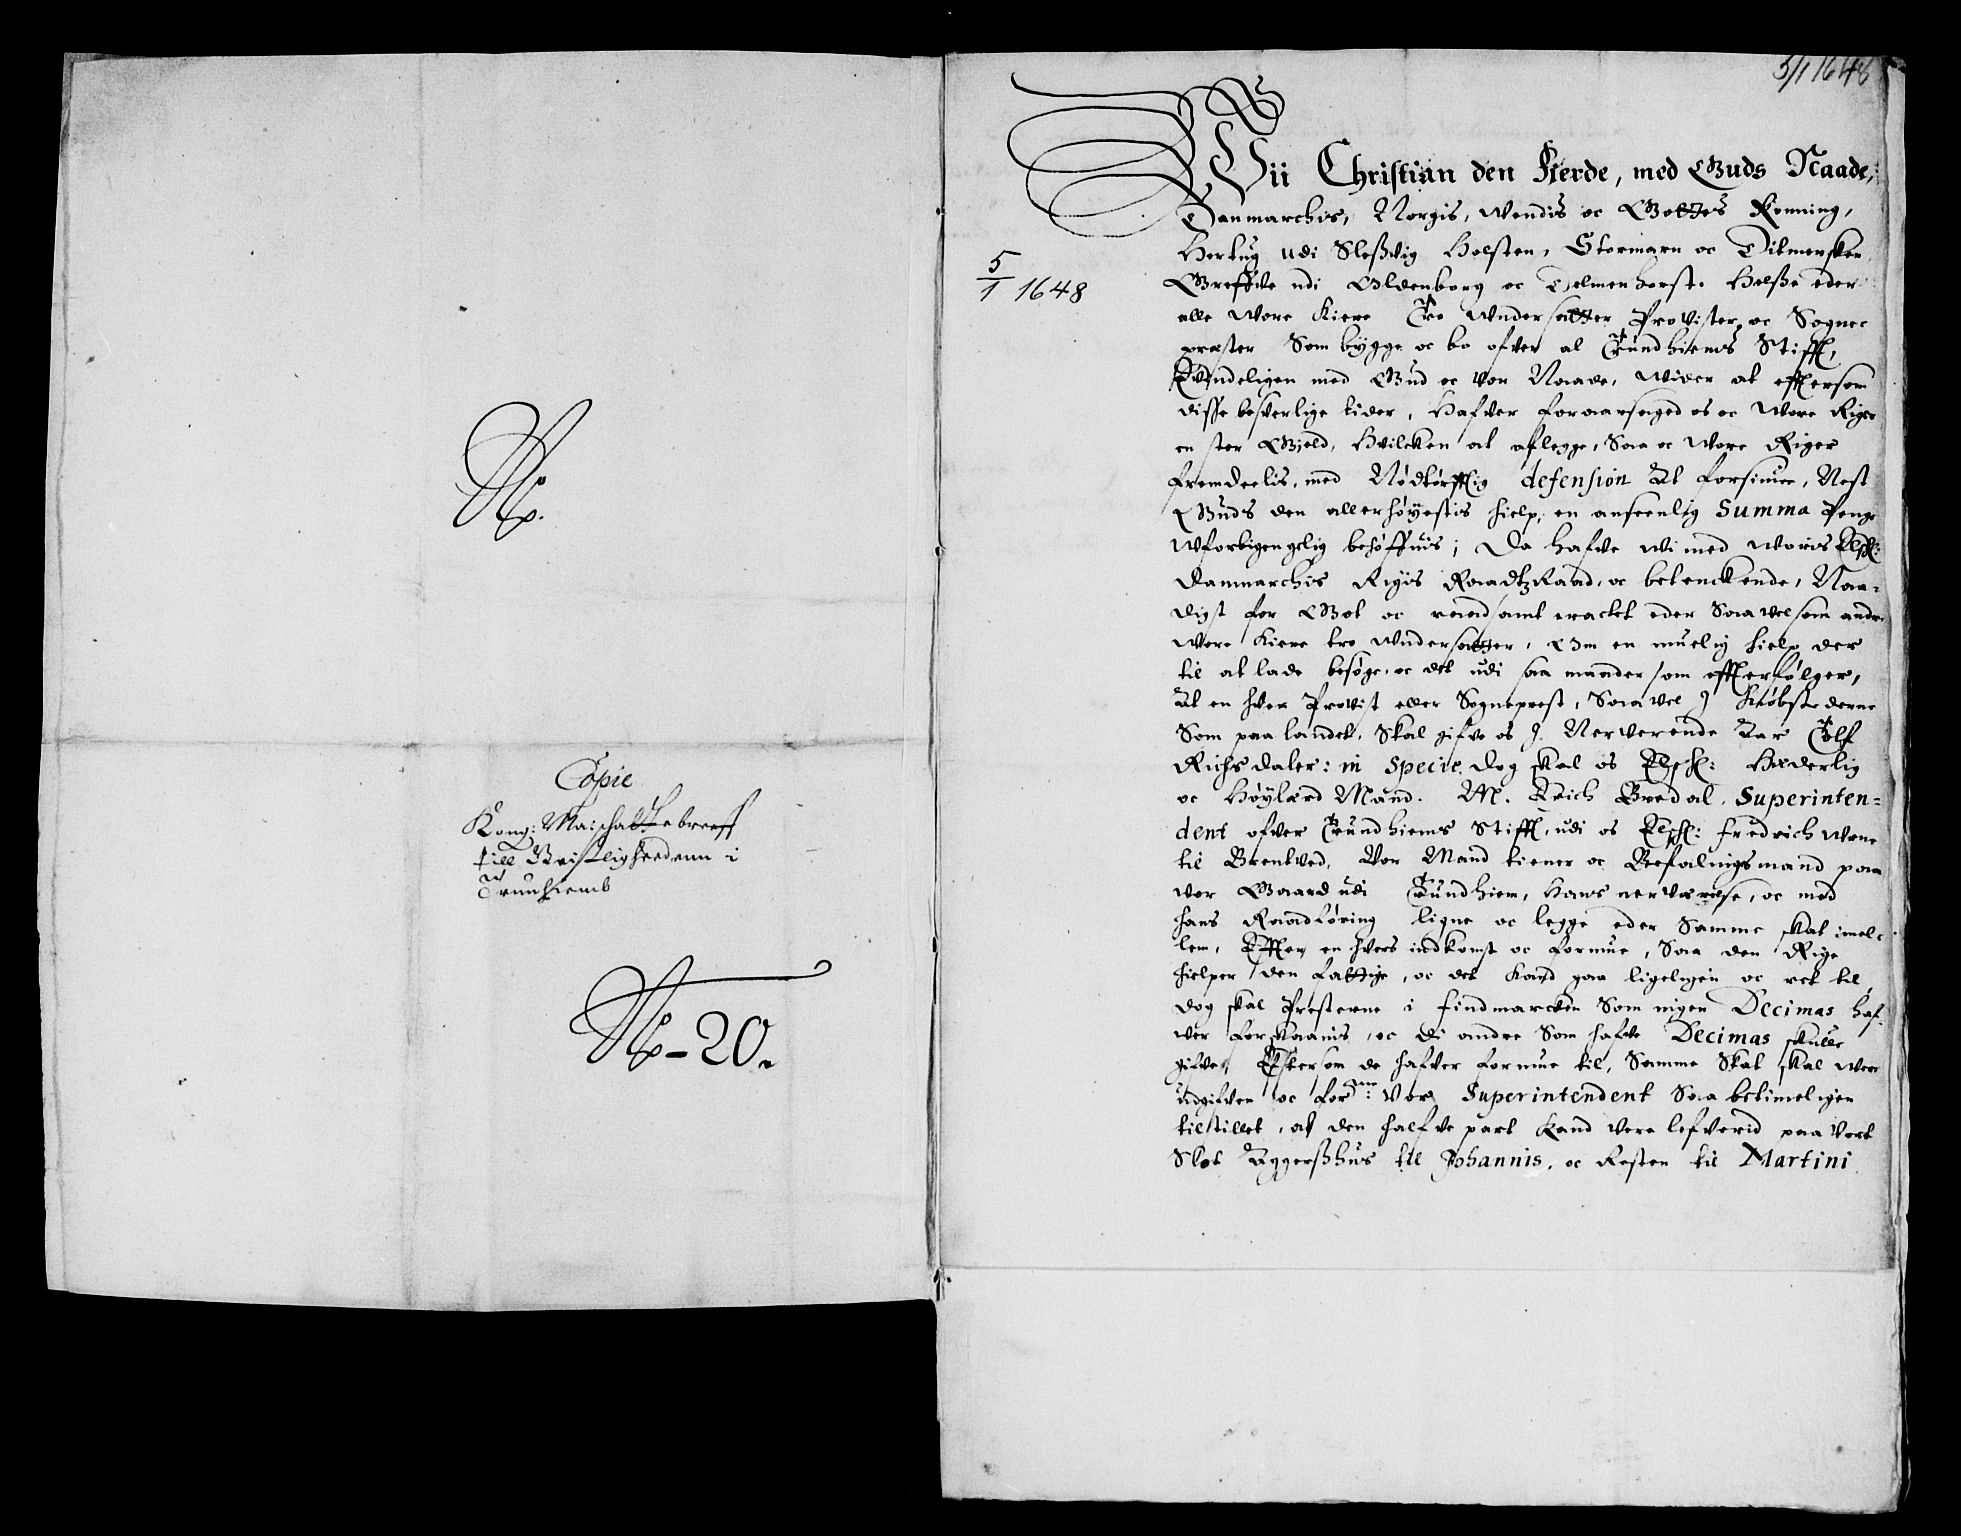 N.
Copie
Kong: Ma: schattebreeff
till Geistligheedenn i
Trunhiemb
N–20.
5/1 1648
5/1 1648
Wii Christian den Fierde, med Guds Naade,
Danmarchis, Norgis, Wendis oc Gottes Konning,
Hertug udi Sleßvig Holsten, Stormarn oc Ditmersken
Greffve udi Oldenborg oc Delmenhorst. Helße eder
alle Wore Kiere Tro Wndersatter Provister oc Sogne
prester Som bygge oc bo ofver al Trundhiems Stifft,
Kyndeligen med Gud oc Vor Naade, Wider at efftersom
disse besverlige tider, Hafver foraarsaged os oc Wore Riger
en stor Gield, Hvilcken at aflegge, Saa oc Wore Riger
fremdeelis, med Nødtørfftig defension At forsiune, Nest
Guds den allerhøyestis hielp, en anseenlig Summa Penge
Wforbigengelig behøffuis; Da hafve Wi med Woris Elskl:
Danmarchis Rigis Raadtz Raad, oc betenckende, Naa-
digst for Got oc raadsamt eractet eder Saavelsom andre
Wore Kiere tro Wndersatter, Om en muelig hielp der
til at lade besøge, oc det udi saa maader som effterfølger,
At en hver Provist eller Sogneprest, Saavel J Kiøbstederne
Som paa landet, Skal gifve os J Nerverende Aar Tolf
Richsdaler: in Specie. Dog skal os Elskl: Hæderlig
oc Høylærd Mand. M. Erich Bredal, Superinten-
dent ofver Trundhiems Stifft, udi os Elskl: Fredrich Wrne
til Brentved, Vor Mand tiener oc Befalingsmand paa
vor Gaard udi Trundhiem, Hans nerværelse, oc med
hans Raadføring ligne oc legge eder Samme skat imel-
lem, Effter en hvers indkomst oc formue, Saa den Rige
hielper den fattige, oc det Kand gaa ligeligen oc ret til,
dog skal Presterne i Findmarcken Som ingen Decimas haf-
ver forskaanis, oc di andre Som hafve Decimas skulle
gifve, Eftersom de hafver formue til, Samme Skat skal were
udgifven oc for:ne Vor Superintendent Saa betimeligen
tilstillet, at den halfve part Kand Vere lefverid paa Vort
Slot Aggerßhus til Johannis, oc Resten til Martini